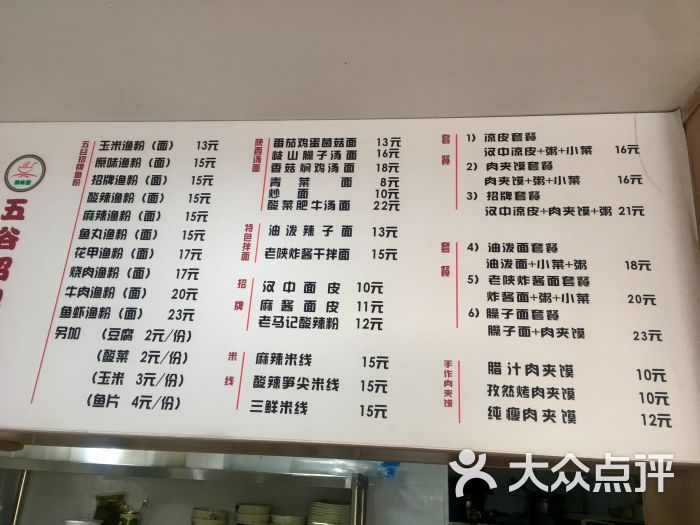 五谷招
五谷招牌鱼粉
玉米渔粉（面） 13元
原味渔粉（面） 15元
招牌渔粉（面） 15元
酸辣渔粉（面） 15元
麻辣渔粉（面） 15元
鱼丸渔粉（面） 15元
花甲渔粉（面） 17元
烧肉渔粉（面） 17元
牛肉渔粉（面） 20元
鱼虾渔粉（面） 23元
另加 （豆腐 2元/份）
（酸菜 2元/份）
（玉米 3元/份）
（鱼片 4元/份）
陕西汤面
番茄鸡蛋菌菇面 13元
岐山臊子汤面 16元
香菇焖鸡汤面 18元
青菜面 8元
炒面 10元
酸菜肥牛汤面 22元
特色拌面
油泼辣子面 13元
老陕炸酱干拌面 15元
招牌
汉中面皮 10元
麻酱面皮 11元
老马记酸辣粉 12元
米线
麻辣米线 15元
酸辣笋尖米线 15元
三鲜米线 15元
套餐
1）凉皮套餐
汉中凉皮+粥+小菜 16元
2）肉夹馍套餐
肉夹馍+粥+小菜 16元
3）招牌套餐
汉中凉皮+肉夹馍+粥 21元
套餐
4）油泼面套餐
油泼面+小菜+粥 18元
5）老陕炸酱面套餐
炸酱面+粥+小菜 20元
6）臊子面套餐
臊子面+肉夹馍 23元
手作肉夹馍
腊汁肉夹馍 10元
孜然烤肉夹馍 10元
纯瘦肉夹馍 12元
大众点评